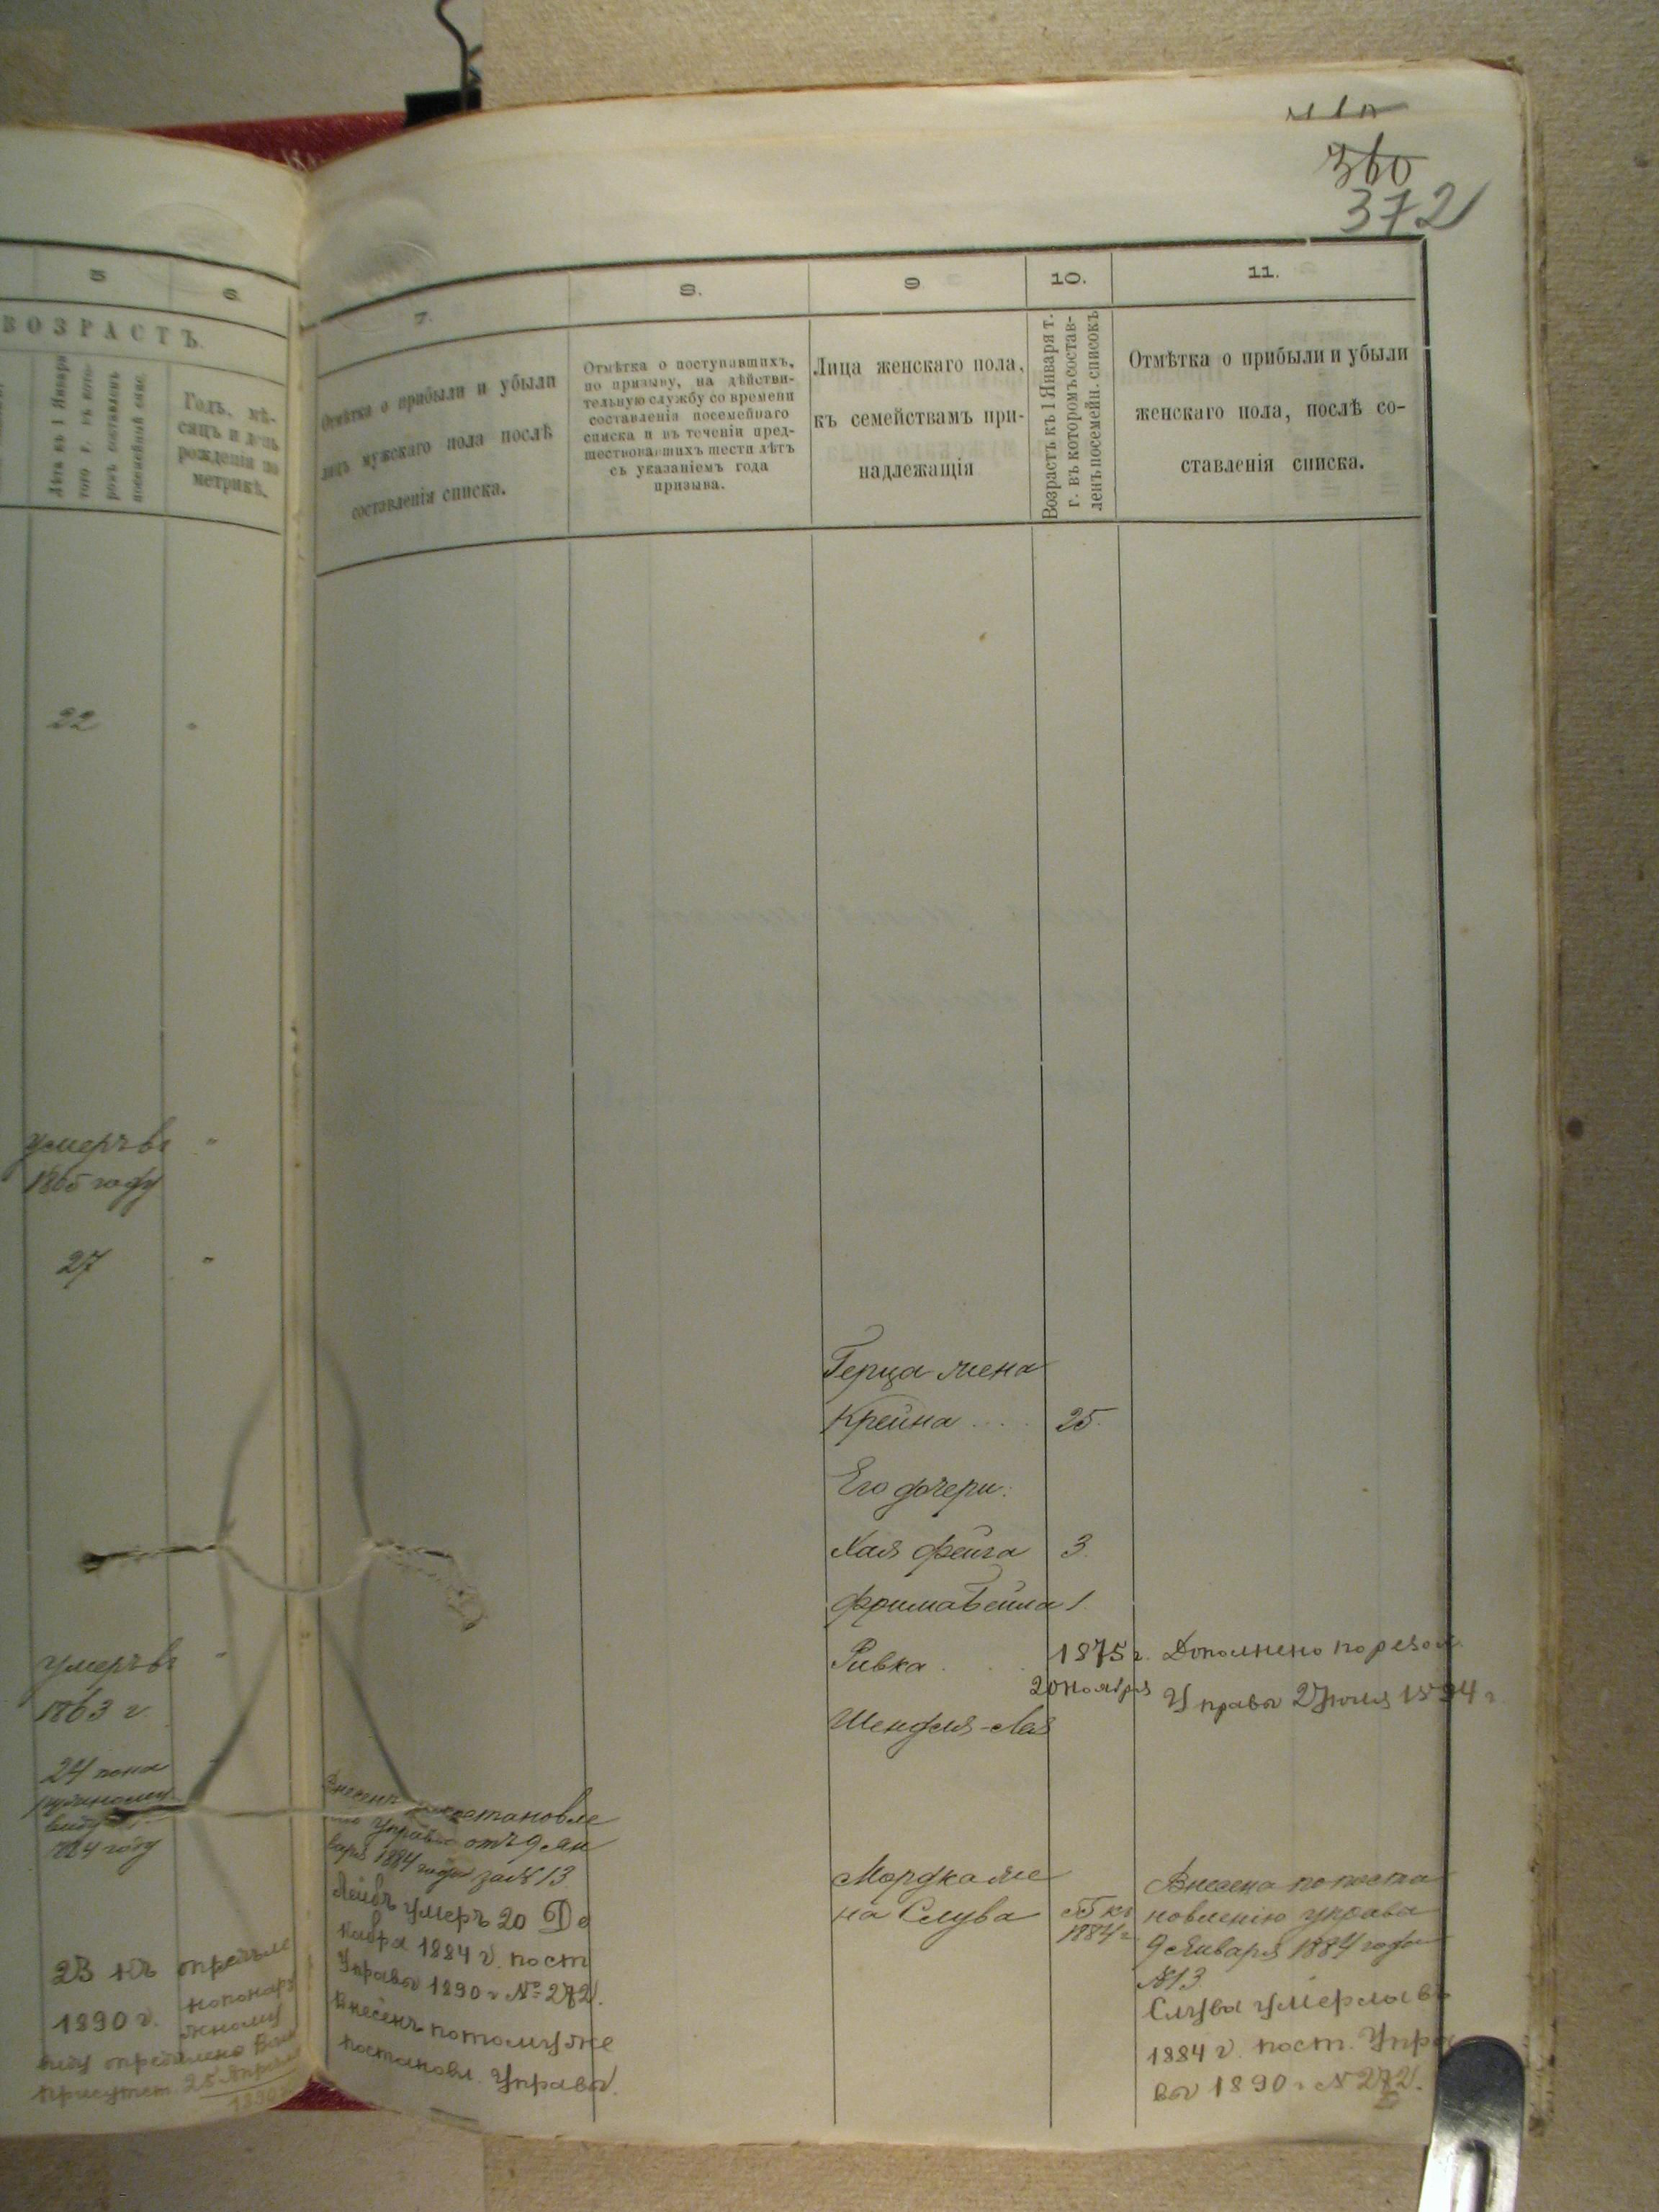 360
372
5
6
7.
8.
9
10.
11.
ВОЗРАСТЪ.
Лѣтъ къ 1 Января
того г. въ кото-
ромъ составленъ
посемейный спис.
Годъ, мѣ-
сяцъ и день
рожденія по
метрикѣ.
Отмѣтка о прибыли и убыли
лицъ мужскаго пола послѣ
составленія списка.
Отмѣтка о поступавшихъ,
по призыву, на дѣйстви-
тельную службу со времени
составленія посемейнаго
списка и въ теченіи пред-
шествовавшихъ шести лѣтъ
съ указаніемъ года
призыва.
Лица женскаго пола,
къ семействамъ при-
надлежащія
Возрастъ къ 1 Января т.
г. въ которомъ состав-
ленъ посемейн. списокъ
Отмѣтка о прибыли и убыли
женскаго пола, послѣ со-
ставленія списка.
22
умеръ въ
1865 году
27
Герца жена
Крейна 25.
Его дочери:
Хая Фейга 3.
Фрима Бейла 1.
Ривка 1875 г. Дополнено по резол.
20 ноября Управы 27 1894 г.
Шендля-Лая
умеръ въ
1863 г.
24 по на
ружному
виду
84 году
Внесенъ постановле
Управы отъ 9 Ян
варя 1884 года за № 13
Лейбъ умеръ 20 Де
кабря 1884 г. пост
Управы 1890 г № 272.
Внесенъ потому же
постановл. Управы.
Мордка же
на Слува
къ
1884 г.
Внесена по поста
новленію управы
9 Января 1884 года
№ 13.
Слува умерла въ
1884 г. пост. Упра
вы 1890 г № 272.
23 къ
1890 г. по наруж
жному
виду опредѣлено
Присутст. 25 Апрѣля
1890